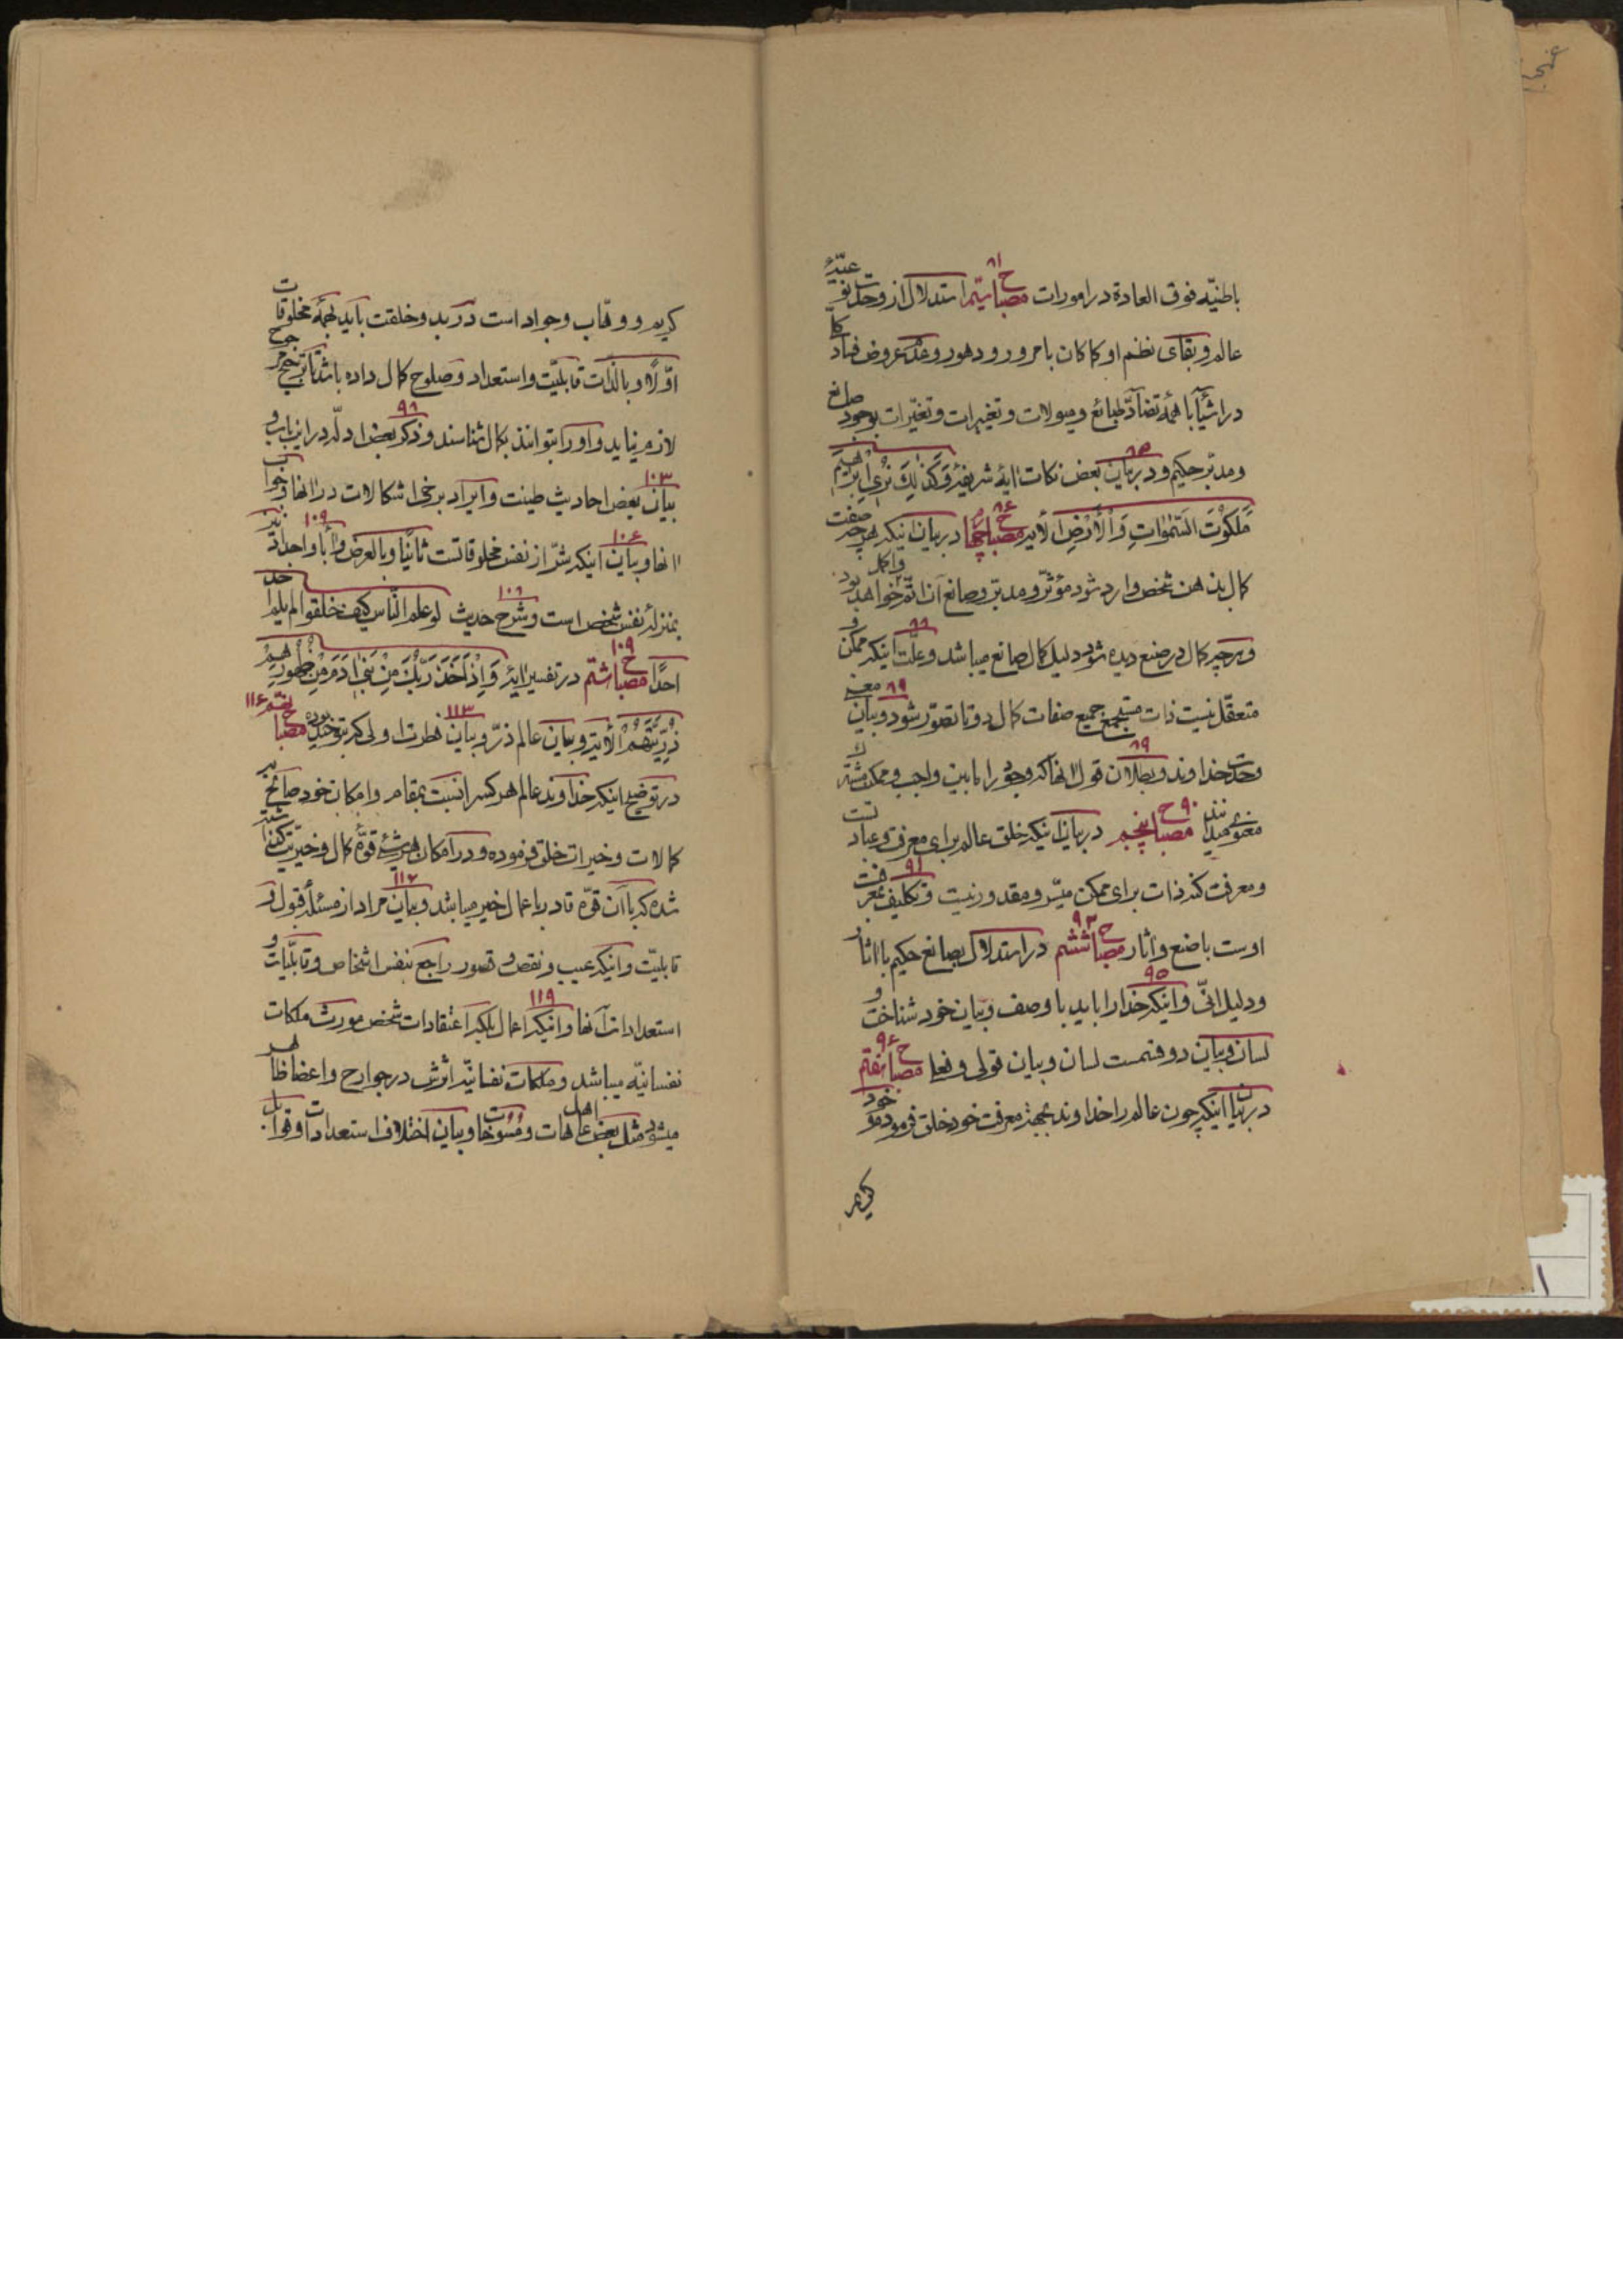 باطنیّه فوق العادة در امورات مصباح سیّم استدلال از وحدت نوعیّهٔ ۸۱
عالم و بقای نظم او کما کان با مرور و دهور و عدم عروض فساد
در اشیآء با همهٔ تضادّ طبایع و میولات و تغییرات و تغیّرات بوجود صانع
و مدبّر حکیم و در بیان بعض نکات ایهٔ شریفهٔ وَکَذٰلِكَ نُرِي اِبْرٰاهِیمَ ۸۵
مَلَکُوْتَ السَّمٰوٰاتِ وَالْاَرْضِ الایه مصباح چهارم در بیان اینکه هر چه صفت ۸۶
کمال بذهن شخص وارد شود مؤثّر و مدبّر و صانع آن اتمّ و اکمل خواهد بود
و هر چه کمال در صنع دیده شود دلیل کمال صانع میباشد و علّت اینکه ممکن و ۸۸
متعقّل نیست ذات مستجمع جمیع صفات کمال دو تا تصوّر شود و بیان ۸۹
وحدت خداوند و بطلان قول انها که وجود را مابین واجب و ممکن مشترك ۸۹
معنوی میدانند مصباح پنجم در بیان اینکه خلق عالم برای معرفت و عبادتست ۹۰
و معرفت کنه ذات برای ممکن میسّر و مقدور نیست و تکلیف بمعرفت ۹۱
اوست با صنع و اثار مصباح ششم در استدلال بصانع حکیم با اثار ۹۳
و دلیل انّی و اینکه خدا را باید با وصف و بیان خود شناخت و ۹۵
لسان و بیان دو قسمست لسان و بیان قولی و فعلی مصباح هفتم ۹۶
در بیان اینکه چون عالم را خداوند بجهة معرفت خود خلق فرموده و خود
کریم
کریم و وهّاب و جواد است در بدو خلقت باید بهمهٔ مخلوقات
اوّلاً و بالذّات قابلیّت و استعداد و صلوح کمال داده باشد تا ترجیح مرجوح
لازم نیاید و او را بتوانند بکمال شناسند و ذکر بعض ادلّه در این باب و ۹۸
بیان بعض احادیث طینت و ایراد برخی اشکالات در انها و جواب ۱۰۳
انها و بیان اینکه شرّ از نفس مخلوقاتست ثانیًا و بالعرض و آباء و اجداد نیز ۱۰۶ ۱۰۹
بمنزلهٔ نفس شخص است و شرح حدیث لو علم النّاس کیف خلقوا لم یلم احد
احدًا مصباح هشتم در تفسیر ایهٔ وَاِذْ اَخَذَ رَبُّكَ مِنْ بَنِیٓ اٰدَمَ مِنْ ظُهُورِهِمْ ۱۰۹
ذُرِّیَّتَهُمْ الْاٰیة و بیان عالم ذرّ و بیان فطرت اولی که بتوحید بوده مصباح نهم ۱۱۳ ۱۱۶
در توضیح اینکه خداوند عالم هر کس را نسبت بمقام و امکان خود صانع
کمالات و خیرات خلق فرموده و در امکان هر شیئی قوّهٔ کمال و خیریّت
شده که با آن قوّه قادر باعمال خیر میباشد و بیان مراد از مسئلهٔ قبول و ۱۱۷
قابلیّت و اینکه عیب و نقص و قصور راجع بنفس اشخاص و قابلیّات و
استعدادات آنها و اینکه اعمال بلکه اعتقادات شخص مورث ملکات ۱۱۹
نفسانیّه میباشد و ملکات نفسانیّه اثرش در جوارح و اعضا ظاهر
میشود مثل بعض اهل عاهات و مسوخات و بیان اختلاف استعدادات و قوابل